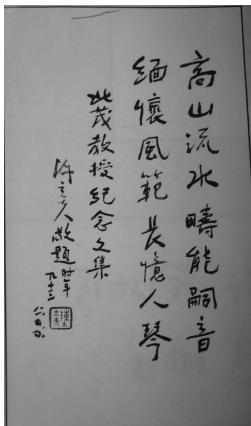 高山流水畴能嗣音
缅懷風範長憶人琴
北茂教授紀念文集
陈立夫敬題時年
九十三